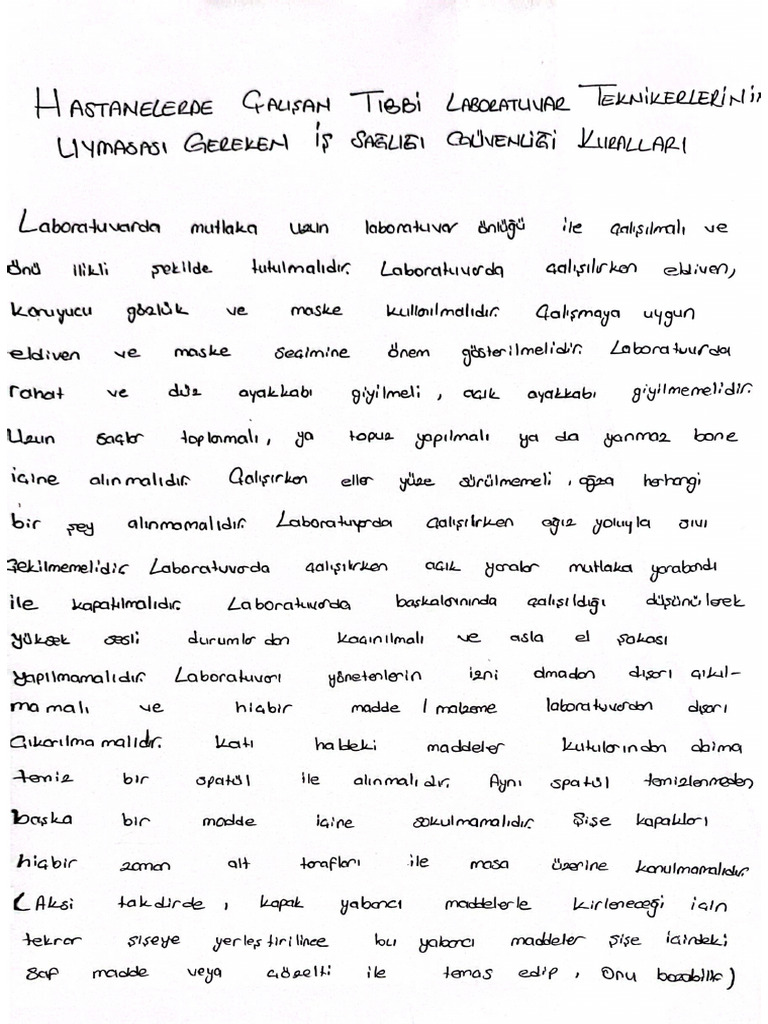 HASTANELERDE ÇALIŞAN TIBBİ LABORATUVAR TEKNİKERLERİNİN
UYMASASI GEREKEN İŞ SAĞLIĞI GÜVENLİĞİ KURALLARI
Laboratuvarda mutlaka uzun laboratuvar önlüğü ile çalışılmalı ve
önü ilikli şekilde tutulmalıdır. Laboratuvarda çalışılırken eldiven,
koruyucu gözlük ve maske kullanılmalıdır. Çalışmaya uygun
eldiven ve maske seçimine önem gösterilmelidir. Laboratuvarda
rahat ve düz ayakkabı giyilmeli, açık ayakkabı giyilmemelidir.
Uzun saçlar toplanmalı, ya topuz yapılmalı ya da yanmaz bone
içine alınmalıdır. Çalışırken eller yüze sürülmemeli, ağza herhangi
bir şey alınmamalıdır. Laboratuvarda çalışılırken ağız yoluyla sıvı
çekilmemelidir. Laboratuvarda çalışılırken açık yaralar mutlaka yarabandı
ile kapatılmalıdır. Laboratuvarda başkalarınında çalışıldığı düşünülerek
yüksek sesli durumlardan kaçınılmalı ve asla el şakası
yapılmamalıdır. Laboratuvarı yönetenlerin izni olmadan dışarı çıkıl-
mamalı ve hiçbir madde / malzeme laboratuvardan dışarı
çıkarılmamalıdır. Katı haldeki maddeler kutularından daima
temiz bir spatül ile alınmalıdır. Aynı spatül temizlenmeden
başka bir madde içine sokulmamalıdır. Şişe kapakları
hiçbir zaman alt tarafları ile masa üzerine konulmamalıdır.
(Aksi takdirde, kapak yabancı maddelerle kirleneceği için
tekrar şişeye yerleştirilince bu yabancı maddeler şişe içindeki
saf madde veya çözelti ile temas edip, onu bozabilir)